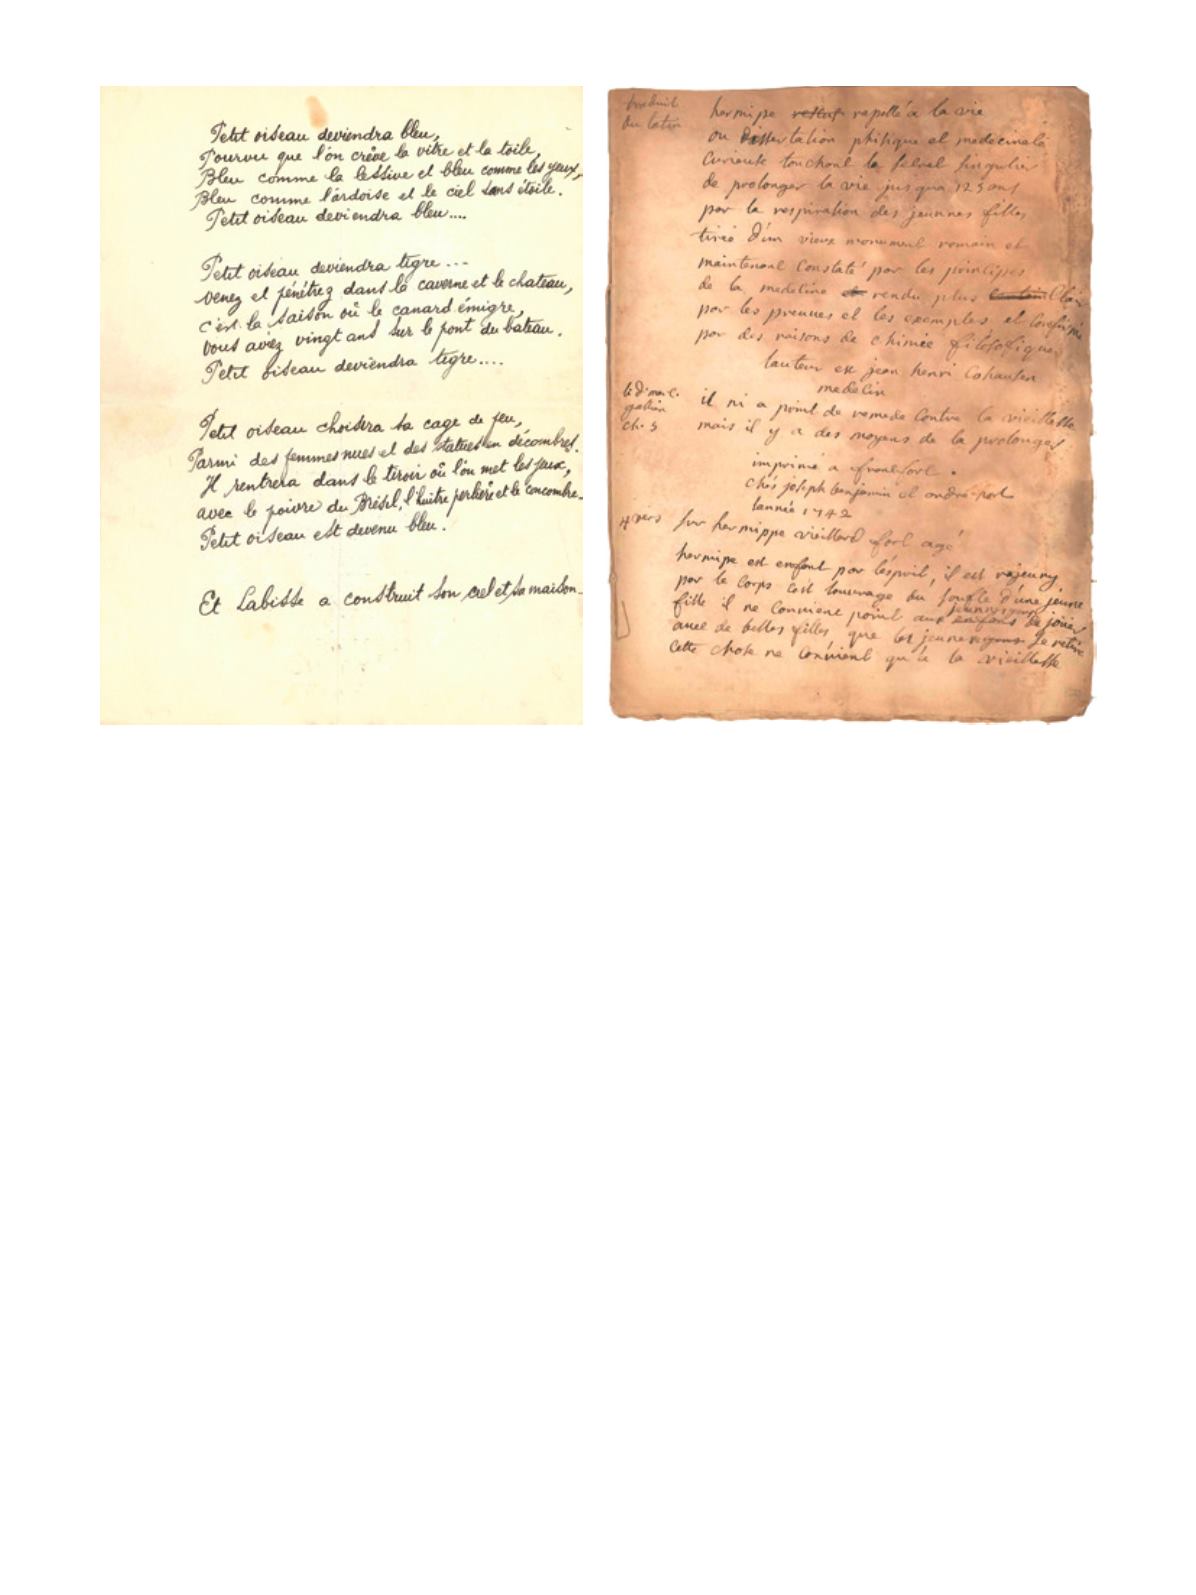 Petit oiseau deviendra bleu,
Pourvu que l'on crève la vitre et la toile,
Bleu comme la lessive et bleu comme les yeux,
Bleu comme l'ardoise et le ciel sans étoile.
Petit oiseau deviendra bleu....
Petit oiseau deviendra tigre...
venez et pénétrez dans la caverne et le chateau,
c'est la saison où le canard émigre,
vous aviez vingt ans sur le pont du bateau.
Petit oiseau deviendra tigre....
Petit oiseau choisira sa cage de feu,
Parmi des femmes nues et des statues en décombres.
Il rentrera dans le tiroir où l'on met les jeux,
avec le poivre du Brésil, l'huître perlière et le concombre.
Petit oiseau est devenu bleu.
Et Labisse a construit son ciel et sa maison.
traduit
du latin
hermipe rapellé a la vie
ou dissertation phisique et medecinale
curieuse touchant le secret singulier
de prolonger la vie jusqua 125 ans
par la respiration des jeunnes filles
tirée d'un vieux monument romain et
maintenant constaté par les principes
de la medecine rendu plus clair
par les preuves et les exemples et confirmé
par des raisons de chimie filosofique
lauteur est jean henri Cohausen
medecin
galien
ch. 5
il ni a point de remede contre la vieillesse
mais il y a des moyens de la prolonger
imprimé a francfort.
chés joseph benjamin et andré
lannée 1742
4 vers
sur hermippe vieillard fort agé
hermipe est enfant par l'esprit, il est rajeuny
par le corps c'est louvrage du soufle d'une jeune
fille il ne convient point aux enfans de jouer
avec de belles filles que les jeunes se retire
cette chose ne convient qu'a la vieillesse